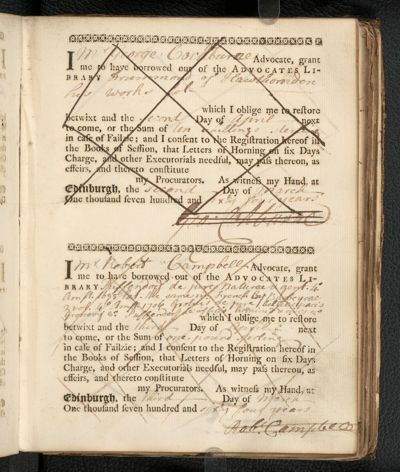 I Mr George Cockburne Advocate, grant
me to have borrowed out of the ADVOCATES LI-
BRARY Drummond of Hawthornden
his works fol
which I oblige me to restore
betwixt and the second Day of April next
to come, or the Sum of ten shillings sterling
in case of Failzie; and I consent to the Registration hereof in
the Books of Session, that Letters of Horning on six Days
Charge, and other Executorials needful, may pass thereon, as
effeirs, and thereto constitute
my Procurators. As witness my Hand, at
Edinburgh, the second Day of March
One thousand seven hundred and sixty four years
I Mr Robert Campbell Advocate, grant
me to have borrowed out of the ADVOCATES LI-
BRARY Puffendorf de jure Naturae & gent. 4o
Amst.
which I oblige me to restore
betwixt and the third Day of next
to come, or the Sum of one pound sterling
in case of Failzie; and I consent to the Registration hereof in
the Books of Session, that Letters of Horning on six Days
Charge, and other Executorials needful, may pass thereon, as
effeirs, and thereto constitute
my Procurators. As witness my Hand, at
Edinburgh, the third Day of March
One thousand seven hundred and sixty four years
Rob. Campbell